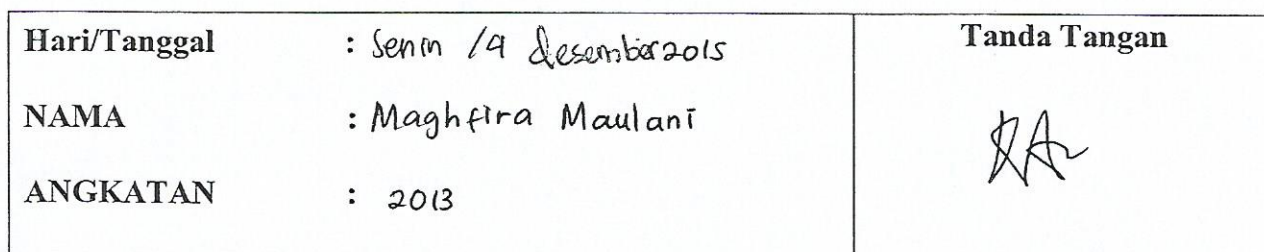 Hari/Tanggal : Senin 14 desember 2015
NAMA : Maghfira Maulani
ANGKATAN : 2013
Tanda Tangan